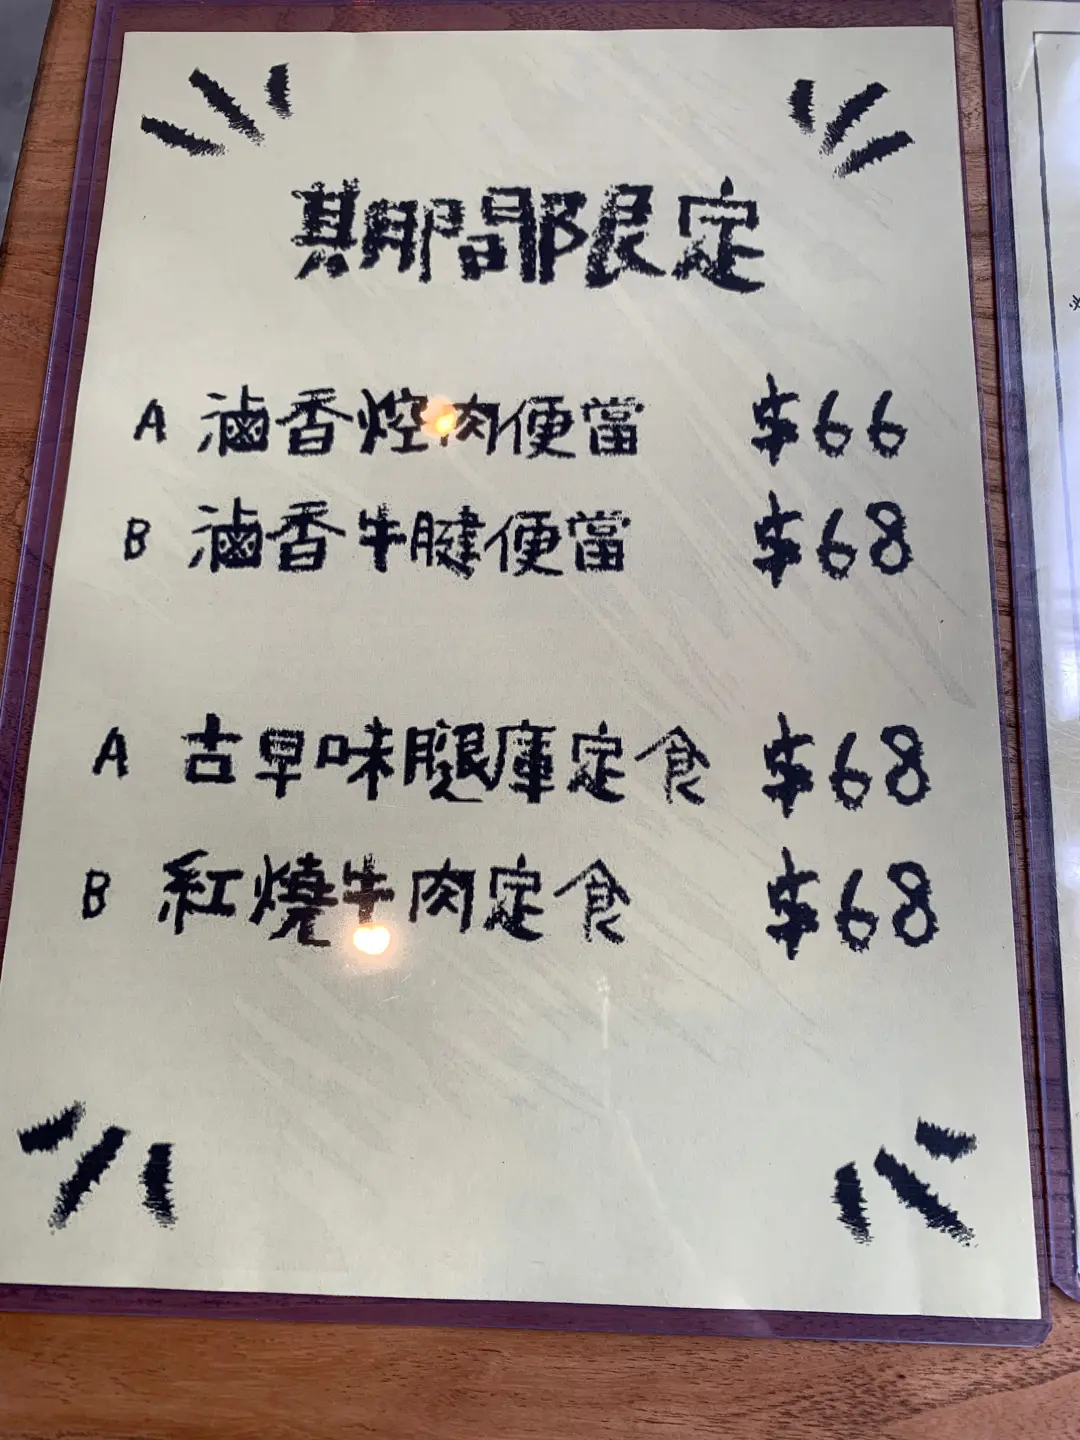 期間限定
A 滷香焢肉便當 $66
B 滷香牛腱便當 $68
A 古早味腿庫定食 $68
B 紅燒牛肉定食 $68